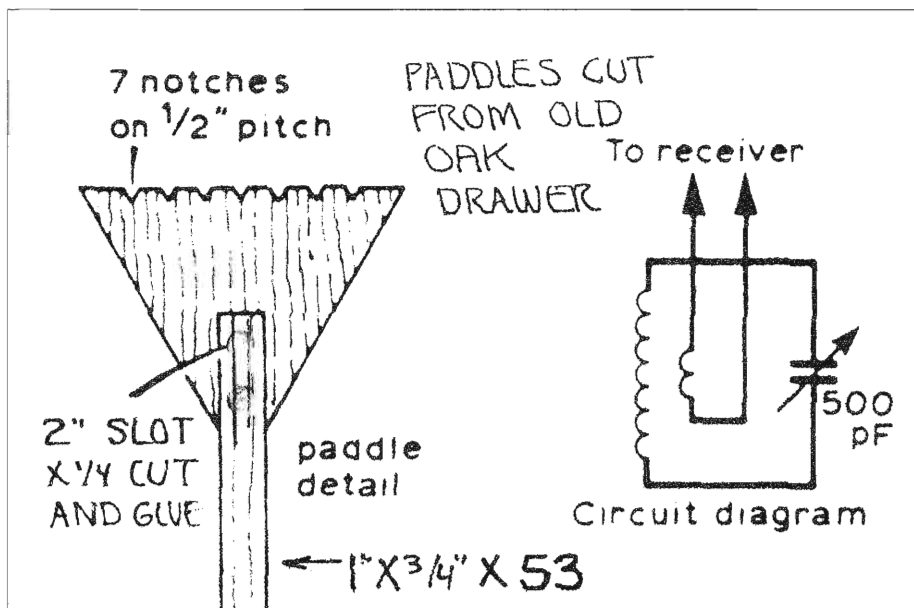 7 notches
on 1/2" pitch
PADDLES CUT
FROM OLD
OAK
DRAWER
To receiver
2" SLOT
X 1/4 CUT
AND GLUE
paddle
detail
500
pF
Circuit diagram
1" X 3/4" X 53